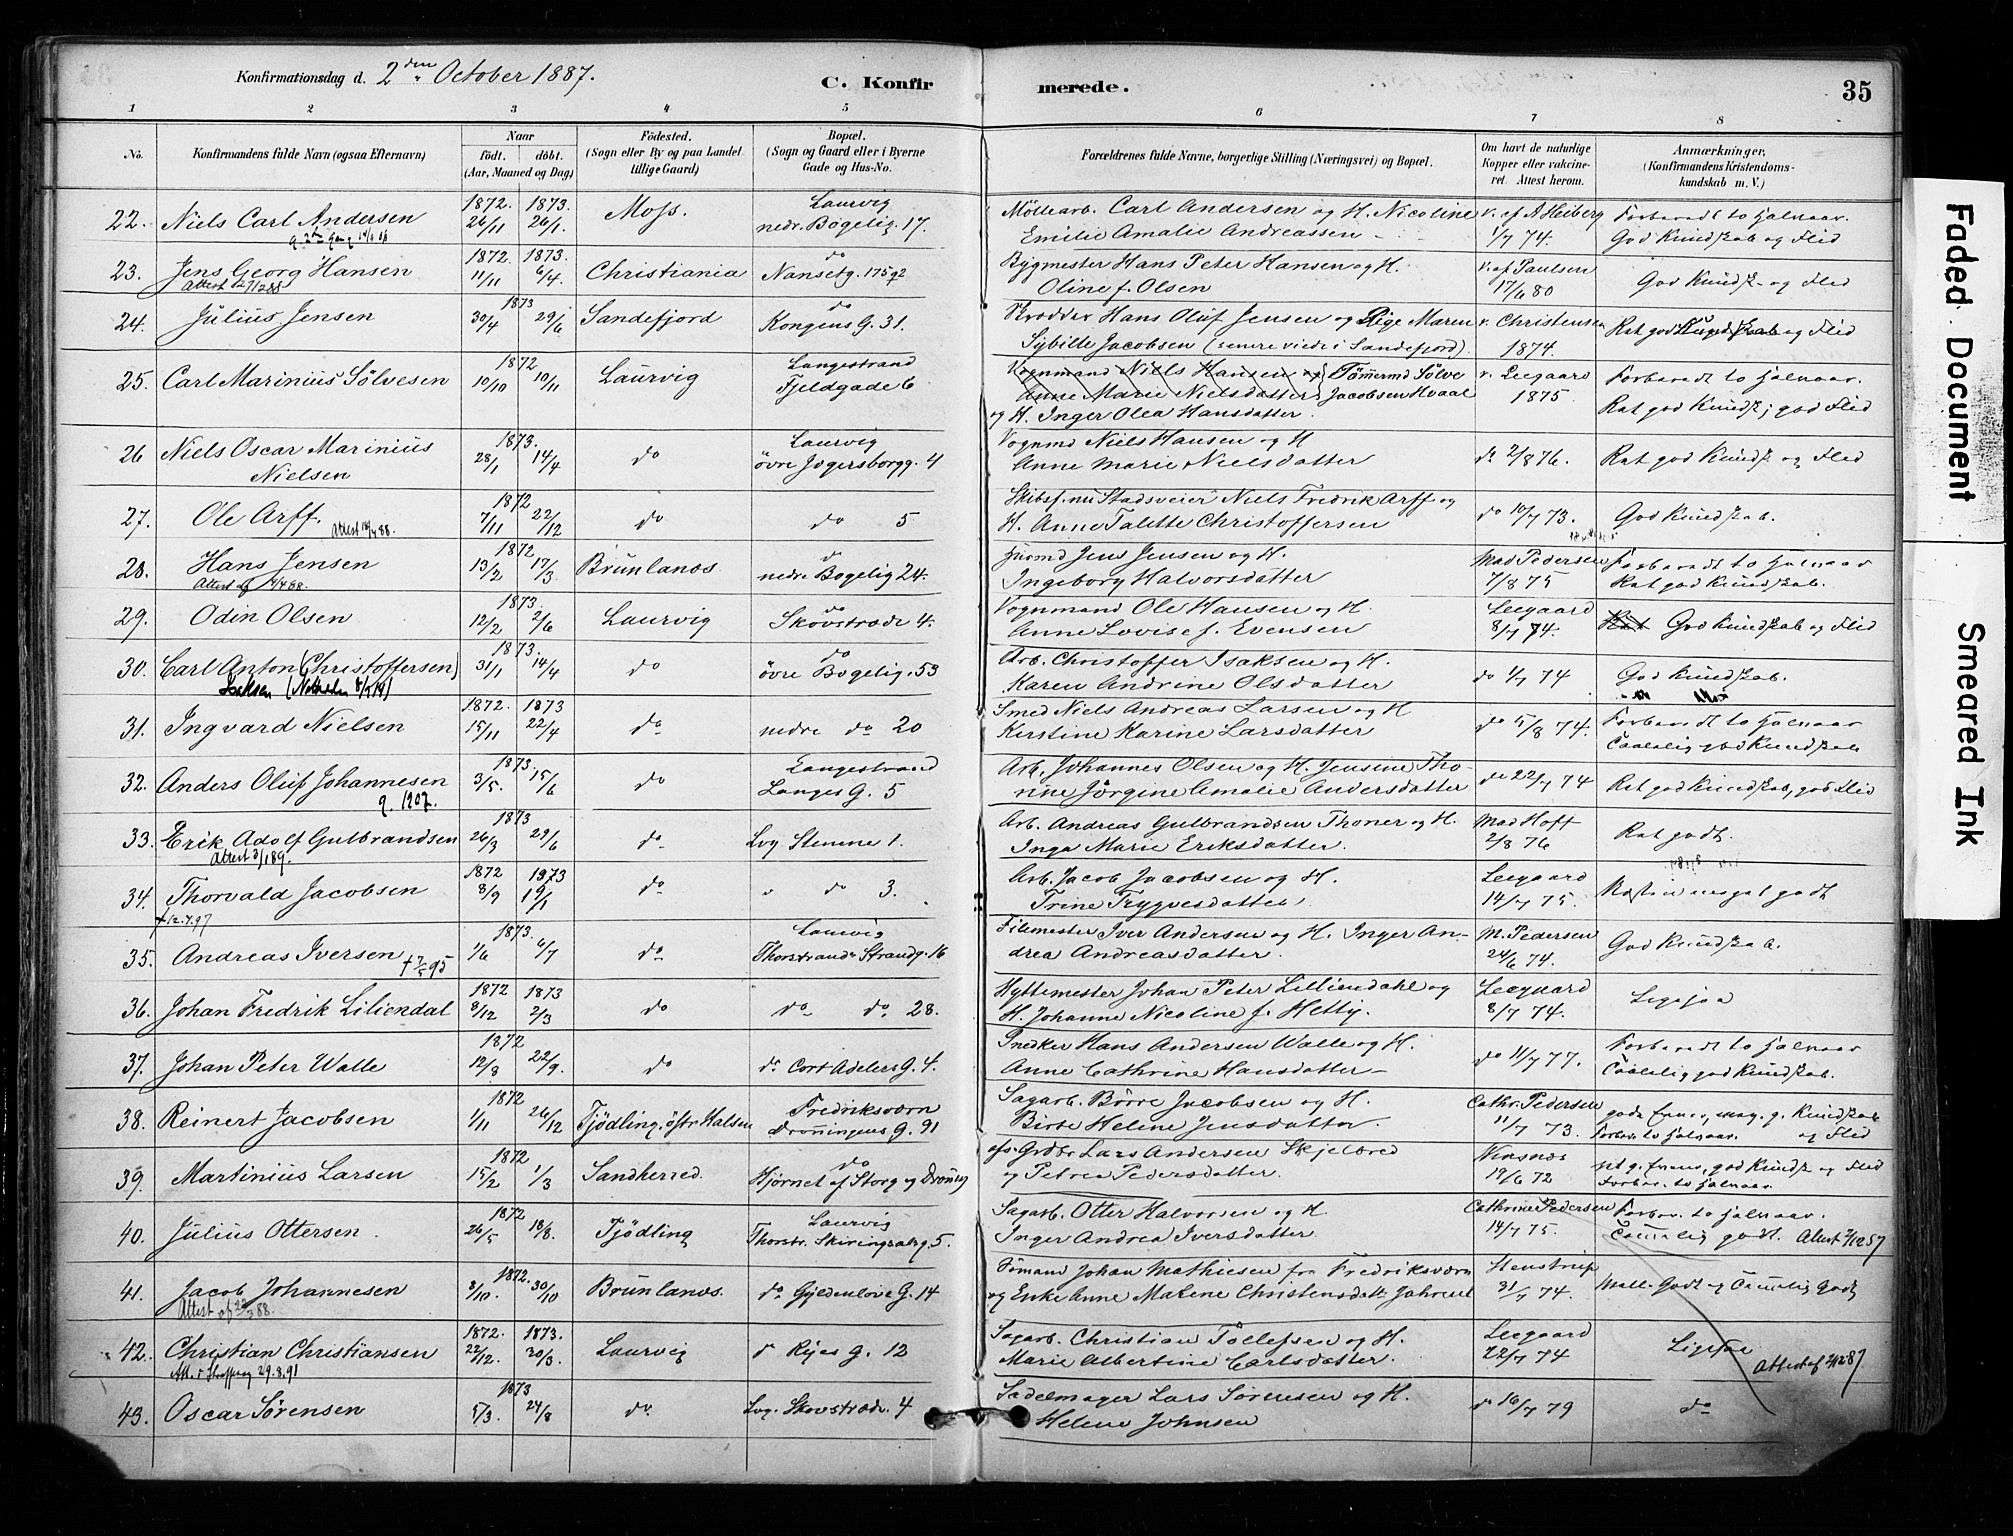 Konfirmationsdag d. 2den October 1887.
C. Konfirmerede.
35
1 2 3 4 5 6 7 8
No. Konfirmandens fulde Navn (ogsaa Efternavn) Naar født. døbt. (Aar, Maaned og Dag) Fødested. (Sogn eller By og paa Landet tillige Gaard) Bopæl. (Sogn og Gaard eller i Byerne Gade og Hus-No. Forældrenes fulde Navne, borgerlige Stilling (Næringsvei) og Bopæl. Om havt de naturlige Kopper eller vakcineret. Attest herom. Anmærkninger, (Konfirmandens Kristendomskundskab m. V.)
22. Niels Carl Andersen 1872. 26/11 1873. 26/1. Moss. Laurvig nedr. Bøgelig. 17. Møllearb. Carl Andersen og H. Nicoline v. af A Heiberg Forberedt to halvaar.
Emilie Amalie Andreassen 1/7 74. God Kundskab og Flid
23. Jens Georg Hansen 1872. 11/11 1873. 6/4. Christiania do Nansetg. 175 Bygmester Hans Peter Hansen og H. v. af Paulsen
Oline f. Olsen 17/6 80 God Kundsk. og Flid
24. Julius Jensen 1873 30/4 29/6 Sandefjord do Kongens G. 31. Skrædder Hans Oluf Jensen og Pige Maren v. Christensen
Sybille Jacobsen (senere viede i Sandefjord). 1874. Ret god Kundskab og Flid
25. Carl Marinius Sölvesen 1872 10/10 10/11 Laurvig Langestrand Fjeldgade 6 Vognmand Niels Hansen og Tömermd Sölve v. Leegaard Forberedt to halvaar.
Anne Marie Nielsdatter Jacobsen Hvaal 1875 Ret god Kundsk; god Flid
og H. Inger Olea Hansdatter.
26 Niels Oscar Marinius Nielsen 1873. 28/1 14/4 do Laurvig övre Jegersborgg. 4 Vognmd Niels Hansen og H
Anne Marie Nielsdatter do 2/8 76. Ret god Kundsk og Flid
27. Ole Arff. 1872 7/11 22/12 do do 5 Skibsf. nu Stadsveier Niels Fredrik Arff og
H. Anne Talette Christoffersen do 10/7 73. God Kundskab.
28. Hans Jensen 1872 13/2 17/3 Brunlanæs do nedre Bøgelig 24. Huusmd Jens Jensen og H. Mad Pedersen Forberedt to halvaar
Ingeborg Halvorsdatter 7/8 75 Ret god Kundskab.
29. Odin Olsen 1873. 12/2 2/6 Laurvig do Skovstræde 4. Vognmand Ole Hansen og H. Leegaard
Anne Lovise f. Evensen 8/7 74. Ret God Kundskab og Flid
30. Carl Anton (Christoffersen) 1873. 31/1 14/4 do do övre Bøgelig. 53 Arb. Christoffer Isaksen og H.
Isaksen Karen Andrine Olsdatter do 1/7 74 God Kundskab.
31. Ingvard Nielsen 1872. 15/11 1873 22/4 do nedre do 20 Smed Niels Andreas Larsen og H
Kirstine Karine Larsdatter do 15/8 74. Forberedt to halvaar
32. Anders Oluf Johannesen 1873. 3/5. 15/6 do Langestrand Langes G. 5 Arb. Johannes Olsen og H. Jensine Tho-
rine Jørgine Amalie Andersdatter do 22/7 74 Ret god Kundskab, god Flid
33. Erik Adolf Gulbrandsen 1873 26/3 29/6 do. Lvg Stemme 1. Arb. Andreas Gulbrandsen Thoner og H. Mad Hoff
Inga Marie Eriksdatter. 2/8 76 Ret godt.
34. Thorvald Jacobsen 1872 8/9 1873 19/1 do do 3. Arb. Jacob Jacobsen og H. Leegaard
+12.7.97 Trine Trygvesdatter 14/7 75. Næsten meget godt
35. Andreas Iversen 1873. 1/6 6/7 do Laurvig Thorstrand Strandg. 16 Filemester Iver Andersen og H. Inger An- M. Pedersen
drea Andreasdatter. 24/6 74. God Kundskab.
36. Johan Fredrik Liliendal 1872 8/12 1873 2/3 do do do 28. Hyttemester Johan Peter Lilliendahl og Leegaard
H. Johanne Nicoline f. Hetty. 8/7 74. Ligesaa
37. Johan Peter Walle 1872 12/8 22/9. do do Cort Adelers G. 4. Snedker Hans Andersen Walle og H.
Anne Cathrine Hansdatter do 11/7 77. Forberedt to halvaar
38. Reinert Jacobsen 1872 1/11 26/12 Tjødling, östr Halsen Fredriksværn Dronningens G. 91 Sagarb. Børre Jacobsen og H. Cathr. Pedersen
Birte Helene Jensdatter. 11/7 73. Forber. to halvaar. og Flid
39. Martinius Larsen 1872 15/2 1/3 Sandherred. do Hjørnet af Storg og Dronng Lars Andersen Skjelbred
og Petrea Pedersdatter. 19/6 72 Forber. to halvaar
40. Julius Ottersen 1872 26/5 18/8. Tjødling Laurvig Thorstr. Skiringsalsg. 5. Sagarb. Otter Halvorsen og H. Cathrine Pedersen Forber. to halvaar.
Inger Andrea Iversdatter. 14/7 75.
41. Jacob Johannesen 1872. 8/10. 30/10 Brunlanæs. do Gyldenløve G. 14 Sömand Johan Mathiesen fra Fredriksværn
og Enke Anne Marene Christensdatt Jahren 31/7 74.
42. Christian Christiansen 1872. 22/12. 1873. 30/3. Laurvig do Rejes G. 12 Sagarb. Christian Tollefsen og H. Leegaard
Marie Albertine Carlsdatter. 22/7 74 Ligesaa
43. Oscar Sörensen 1873 5/3. 24/8 do. Lvg. Skovstræde. 4 Sadelmager Lars Sörensen og H.
Helene Johnsen do 16/7 79 do
Faded Document
Smeared Ink